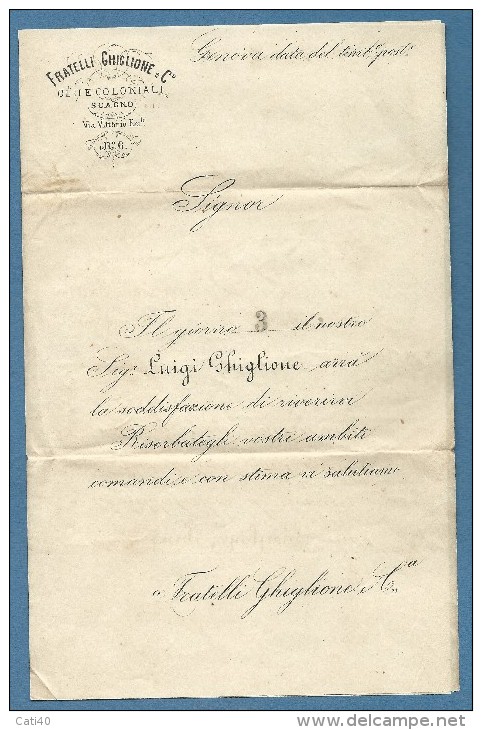 Genova data del timb.º post.º
FRATELLI GHIGLIONE & C.º
COLONIALI
SCAGNO
Via Vittorio Em.le
N.º 6
Signor
Il giorno 3 il nostro
Sig.r Luigi Ghiglione avrà
la soddisfazione di riverirvi
Riserbategli vostri ambiti
comandi e con stima vi salutiamo
Fratelli Ghiglione & C.a
Cati40
www.delcampe.net